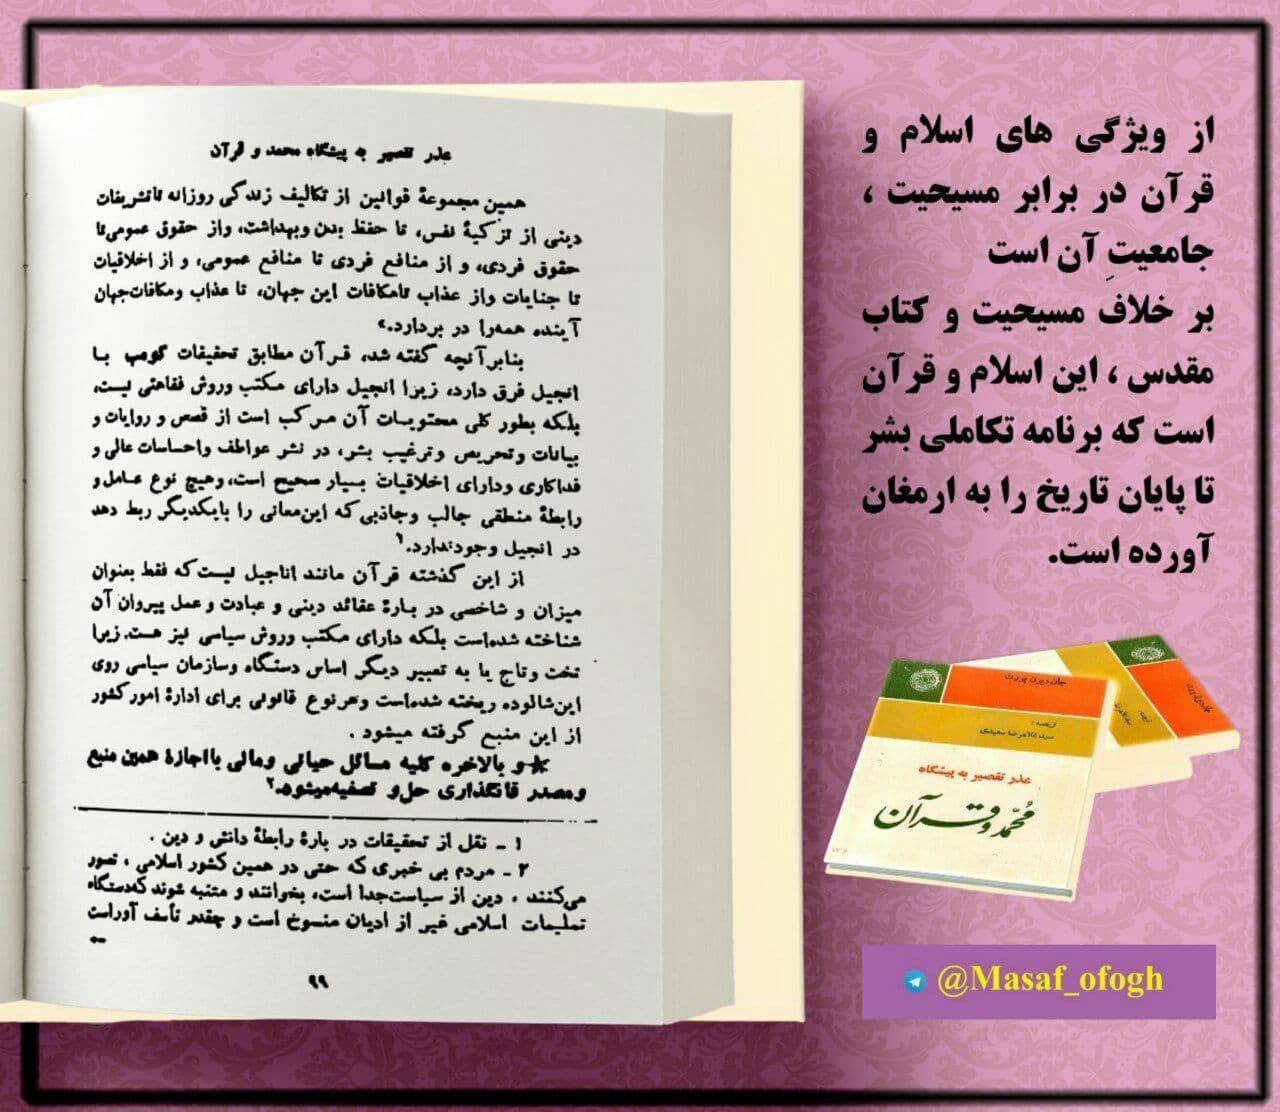 از ویژگی های اسلام و
قرآن در برابر مسیحیت ،
جامعیتِ آن است
بر خلاف مسیحیت و کتاب
مقدس ، این اسلام و قرآن
است که برنامه تکاملی بشر
تا پایان تاریخ را به ارمغان
آورده است.
عذر تقصیر به پیشگاه محمد و قرآن
همین مجموعهٔ قوانین از تکالیف زندگی روزانه تا تشریفات
دینی از تزکیهٔ نفس، تا حفظ بدن وبهداشت، واز حقوق عمومی تا
حقوق فردی، و از منافع فردی تا منافع عمومی، و از اخلاقیات
تا جنایات واز عذاب تا مکافات این جهان، تا عذاب ومکافات جهان
آینده همه را در بردارد.»
بنابر آنچه گفته شد، قرآن مطابق تحقیقات کومب با
انجیل فرق دارد، زیرا انجیل دارای مکتب وروش فقاهتی نیست،
بلکه بطور کلی محتویات آن مرکب است از قصص و روایات و
بیانات وتحریص وترغیب بشر، در نشر عواطف واحساسات عالی و
فداکاری ودارای اخلاقیات بسیار صحیح است، وهیچ نوع عامل و
رابطهٔ منطقی جالب وجاذبی که این معانی را بایکدیگر ربط دهد
در انجیل وجود ندارد.۱
از این گذشته قرآن مانند اناجیل نیست که فقط بعنوان
میزان و شاخصی در بارهٔ عقائد دینی و عبادت و عمل پیروان آن
شناخته شده است بلکه دارای مکتب وروش سیاسی نیز هست. زیرا
تخت وتاج یا به تعبیر دیگر اساس دستگاه وسازمان سیاسی روی
این شالوده ریخته شده است وهر نوع قانونی برای ادارهٔ امور کشور
از این منبع گرفته میشود .
★و بالاخره کلیه مسائل حیاتی ومالی با اجازهٔ همین منبع
ومصدر قانگذاری حل و تصفیه میشود.۲
۱ - نقل از تحقیقات در بارهٔ رابطهٔ دانش و دین .
۲ - مردم بی خبری که حتی در همین کشور اسلامی ، تصور
می‌کنند ، دین از سیاست جدا است، بخوانند و متنبه شوند که دستگاه
تعلیمات اسلامی غیر از ادیان منسوخ است و چقدر تأسف آور است
۹۹
جان دیون پورت
ترجمه :
سید غلامرضا سعیدی
عذر تقصیر به پیشگاه
محمد و قرآن
@Masaf_ofogh